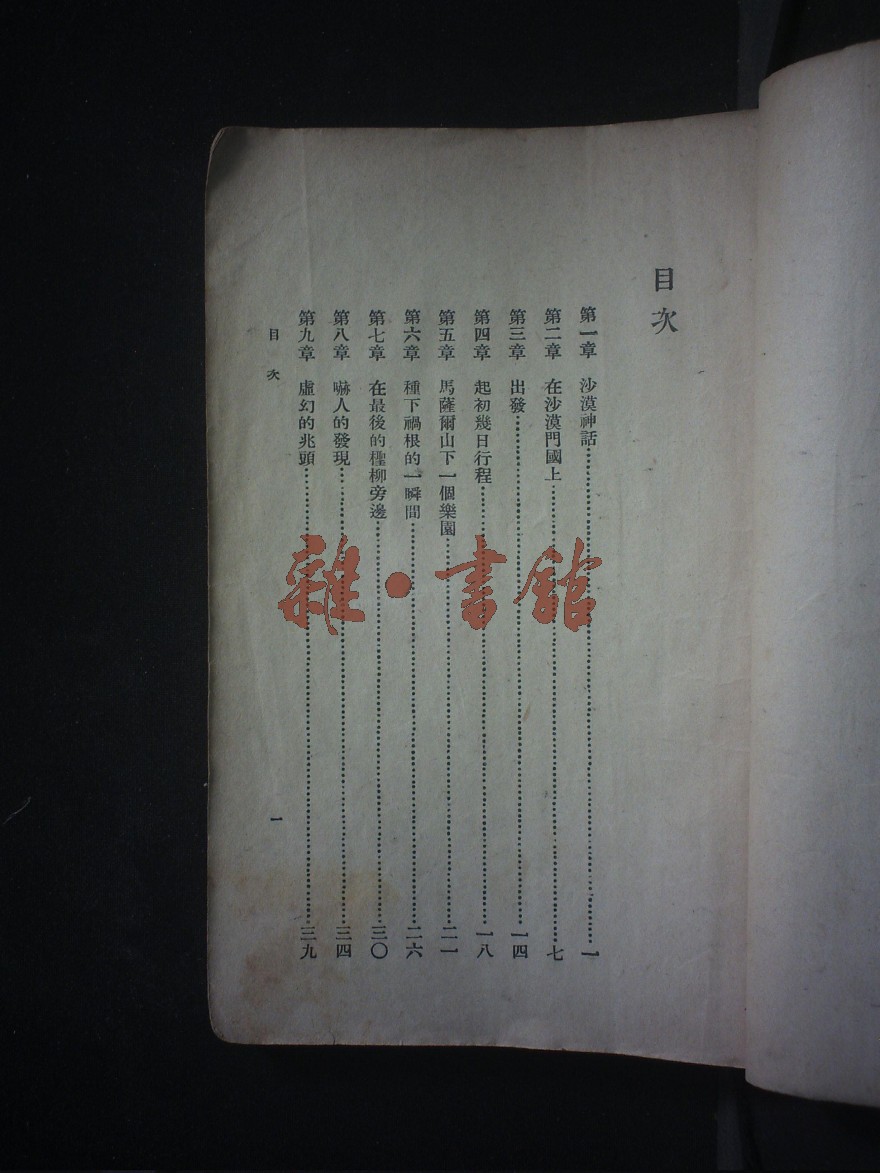 目次
第一章 沙漠神話……一
第二章 在沙漠門國上……七
第三章 出發……一四
第四章 起初幾日行程……一八
第五章 馬薩爾山下一個樂園……二一
第六章 種下禍根的一瞬間……二六
第七章 在最後的檉柳旁邊……三〇
第八章 嚇人的發現……三四
第九章 虛幻的兆頭……三九
目次 一
雜·書館